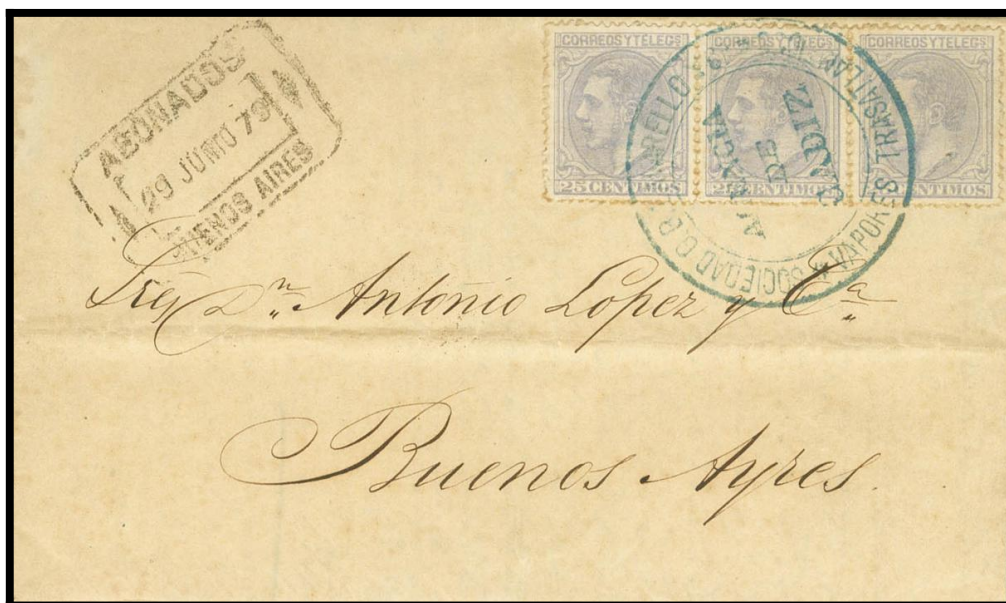 ABONADOS
29 JUNIO 79
BUENOS AIRES
CORREOS Y TELEGS
25 CENTIMOS
CORREOS Y TELEGS
25 CENTIMOS
CORREOS Y TELEGS
CENTIMOS
SOCIEDAD VAPORES TRASATLAN
AGENCIA
DE
CADIZ
Dn. Antonio Lopez y Ca.
Buenos Ayres.